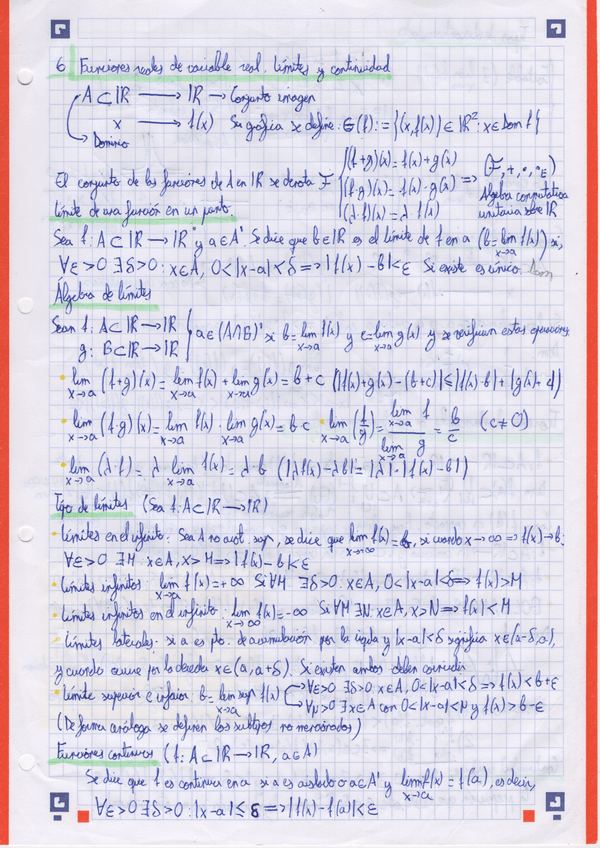 6 Funciones reales de variable real. Límites y continuidad
A⊂IR ⟶ IR → Conjunto imagen
x ⟶ f(x) Su gráfica se define: G(f):={(x,f(x))∈IR²: x∈Dom f}
Dominio
El conjunto de las funciones de A en IR se denota F { (f+g)(x)=f(x)+g(x) (f·g)(x)=f(x)·g(x) (λ·f)(x)=λ·f(x) ⇒ (F,+,·,·E) Álgebra conmutativa unitaria sobre IR
Límite de una función en un punto.
Sea f:A⊂IR⟶IR y a∈A'. Se dice que b∈IR es el límite de f en a (b=lim x→a f(x)) si,
∀ε>0 ∃δ>0: x∈A, 0<|x-a|<δ ⇒ |f(x)-b|<ε Si existe es único
Álgebra de límites
Sean f:A⊂IR⟶IR
g:B⊂IR⟶IR } a∈(A∩B)' si b=lim x→a f(x) y c=lim x→a g(x) y se verifican estas operaciones
• lim x→a (f+g)(x)=lim x→a f(x)+lim x→a g(x)=b+c (|f(x)+g(x)-(b+c)|≤|f(x)-b|+|g(x)-c|)
• lim x→a (f·g)(x)=lim x→a f(x)·lim x→a g(x)=b·c • lim x→a (f/g)=lim x→a f / lim x→a g = b/c (c≠0)
• lim x→a (λ·f)=λ·lim x→a f(x)=λ·b (|λf(x)-λb|=|λ|·|f(x)-b|)
Tipo de límites (Sea f:A⊂IR⟶IR)
• Límites en el infinito: Sea A no acot. sup., se dice que lim x→∞ f(x)=b, si cuando x→∞ ⇒ f(x)→b:
∀ε>0 ∃M: x∈A, x>M ⇒ |f(x)-b|<ε
• Límites infinitos: lim x→a f(x)=+∞ Si ∀M ∃δ>0: x∈A, 0<|x-a|<δ ⇒ f(x)>M
• Límites infinitos en el infinito: lim x→∞ f(x)=-∞ Si ∀M ∃N: x∈A, x>N ⇒ f(x)<M
- Límites laterales: si a es pto. de acumulación por la izqda y |x-a|<δ significa x∈(a-δ,a),
y cuando ocurre por la derecha x∈(a,a+δ). Si existen ambos deben coincidir
• Límite superior e inferior b=lim x→a sup f(x) → ∀ε>0 ∃δ>0: x∈A, 0<|x-a|<δ ⇒ f(x)<b+ε
→ ∀μ>0 ∃x∈A con 0<|x-a|<μ y f(x)>b-ε
(De forma análoga se definen los subtipos no mencionados)
Funciones continuas (f:A⊂IR⟶IR, a∈A)
Se dice que f es continua en a si a es aislado o a∈A' y lim x→a f(x)=f(a), es decir,
∀ε>0 ∃δ>0: |x-a|≤δ ⇒ |f(x)-f(a)|<ε